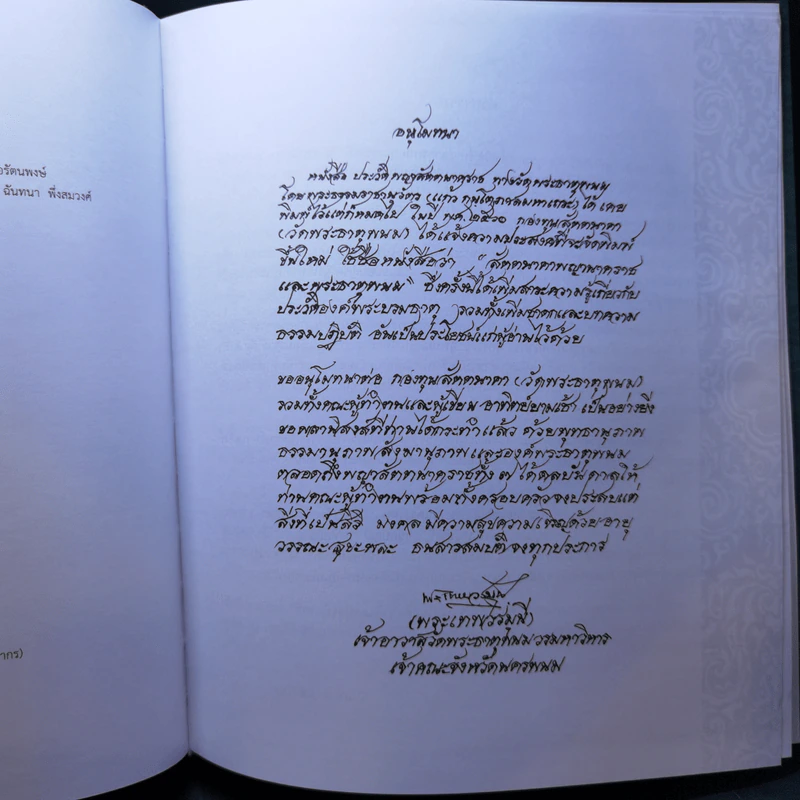 อรัตนพงษ์
ฉันทนา พึ่งสมวงศ์
ากร)
อนุโมทนา
หนังสือ ประวัติ พญาสัตตนาคราช แห่งวัดพระธาตุพนม
โดย พระธรรมราชานุวัตร (แก้ว กนฺโตภาสมหาเถระ) ได้เคย
พิมพ์ไว้แต่ก็หมดไป ในปี พ.ศ. ๒๕๖๐ กองทุนสัตตนาคา
(วัดพระธาตุพนม) ได้แจ้งความประสงค์ที่จะจัดพิมพ์
ขึ้นใหม่ ใช้ชื่อหนังสือว่า "สัตตนาคาพญานาคราช
และพระธาตุพนม" ซึ่งครั้งนี้ได้เพิ่มสาระความรู้เกี่ยวกับ
ประวัติองค์พระบรมธาตุ รวมทั้งเพิ่มชาดกและบทความ
ธรรมปฏิบัติ อันเป็นประโยชน์แก่ผู้อ่านไว้ด้วย
ขออนุโมทนาต่อ กองทุนสัตตนาคา (วัดพระธาตุพนม)
รวมทั้งคณะผู้ทำงานและผู้เขียน อาทิตย์ยามเช้า เป็นอย่างยิ่ง
ขอผลานิสงส์ที่ท่านได้กระทำแล้ว ด้วยพุทธานุภาพ
ธรรมานุภาพ สังฆานุภาพ และองค์พระธาตุพนม
ตลอดถึงพญาสัตตนาคราชทั้ง ๗ ได้ดลบันดาลให้
ท่านคณะผู้ทำงานพร้อมทั้งครอบครัว จงประสบแต่
สิ่งที่เป็นสิริ มงคล มีความสุขความเจริญด้วย อายุ
วรรณะ สุขะ พละ ธนสารสมบัติ จงทุกประการ
(พระเทพวรมุนี)
เจ้าอาวาสวัดพระธาตุพนมวรมหาวิหาร
เจ้าคณะจังหวัดนครพนม